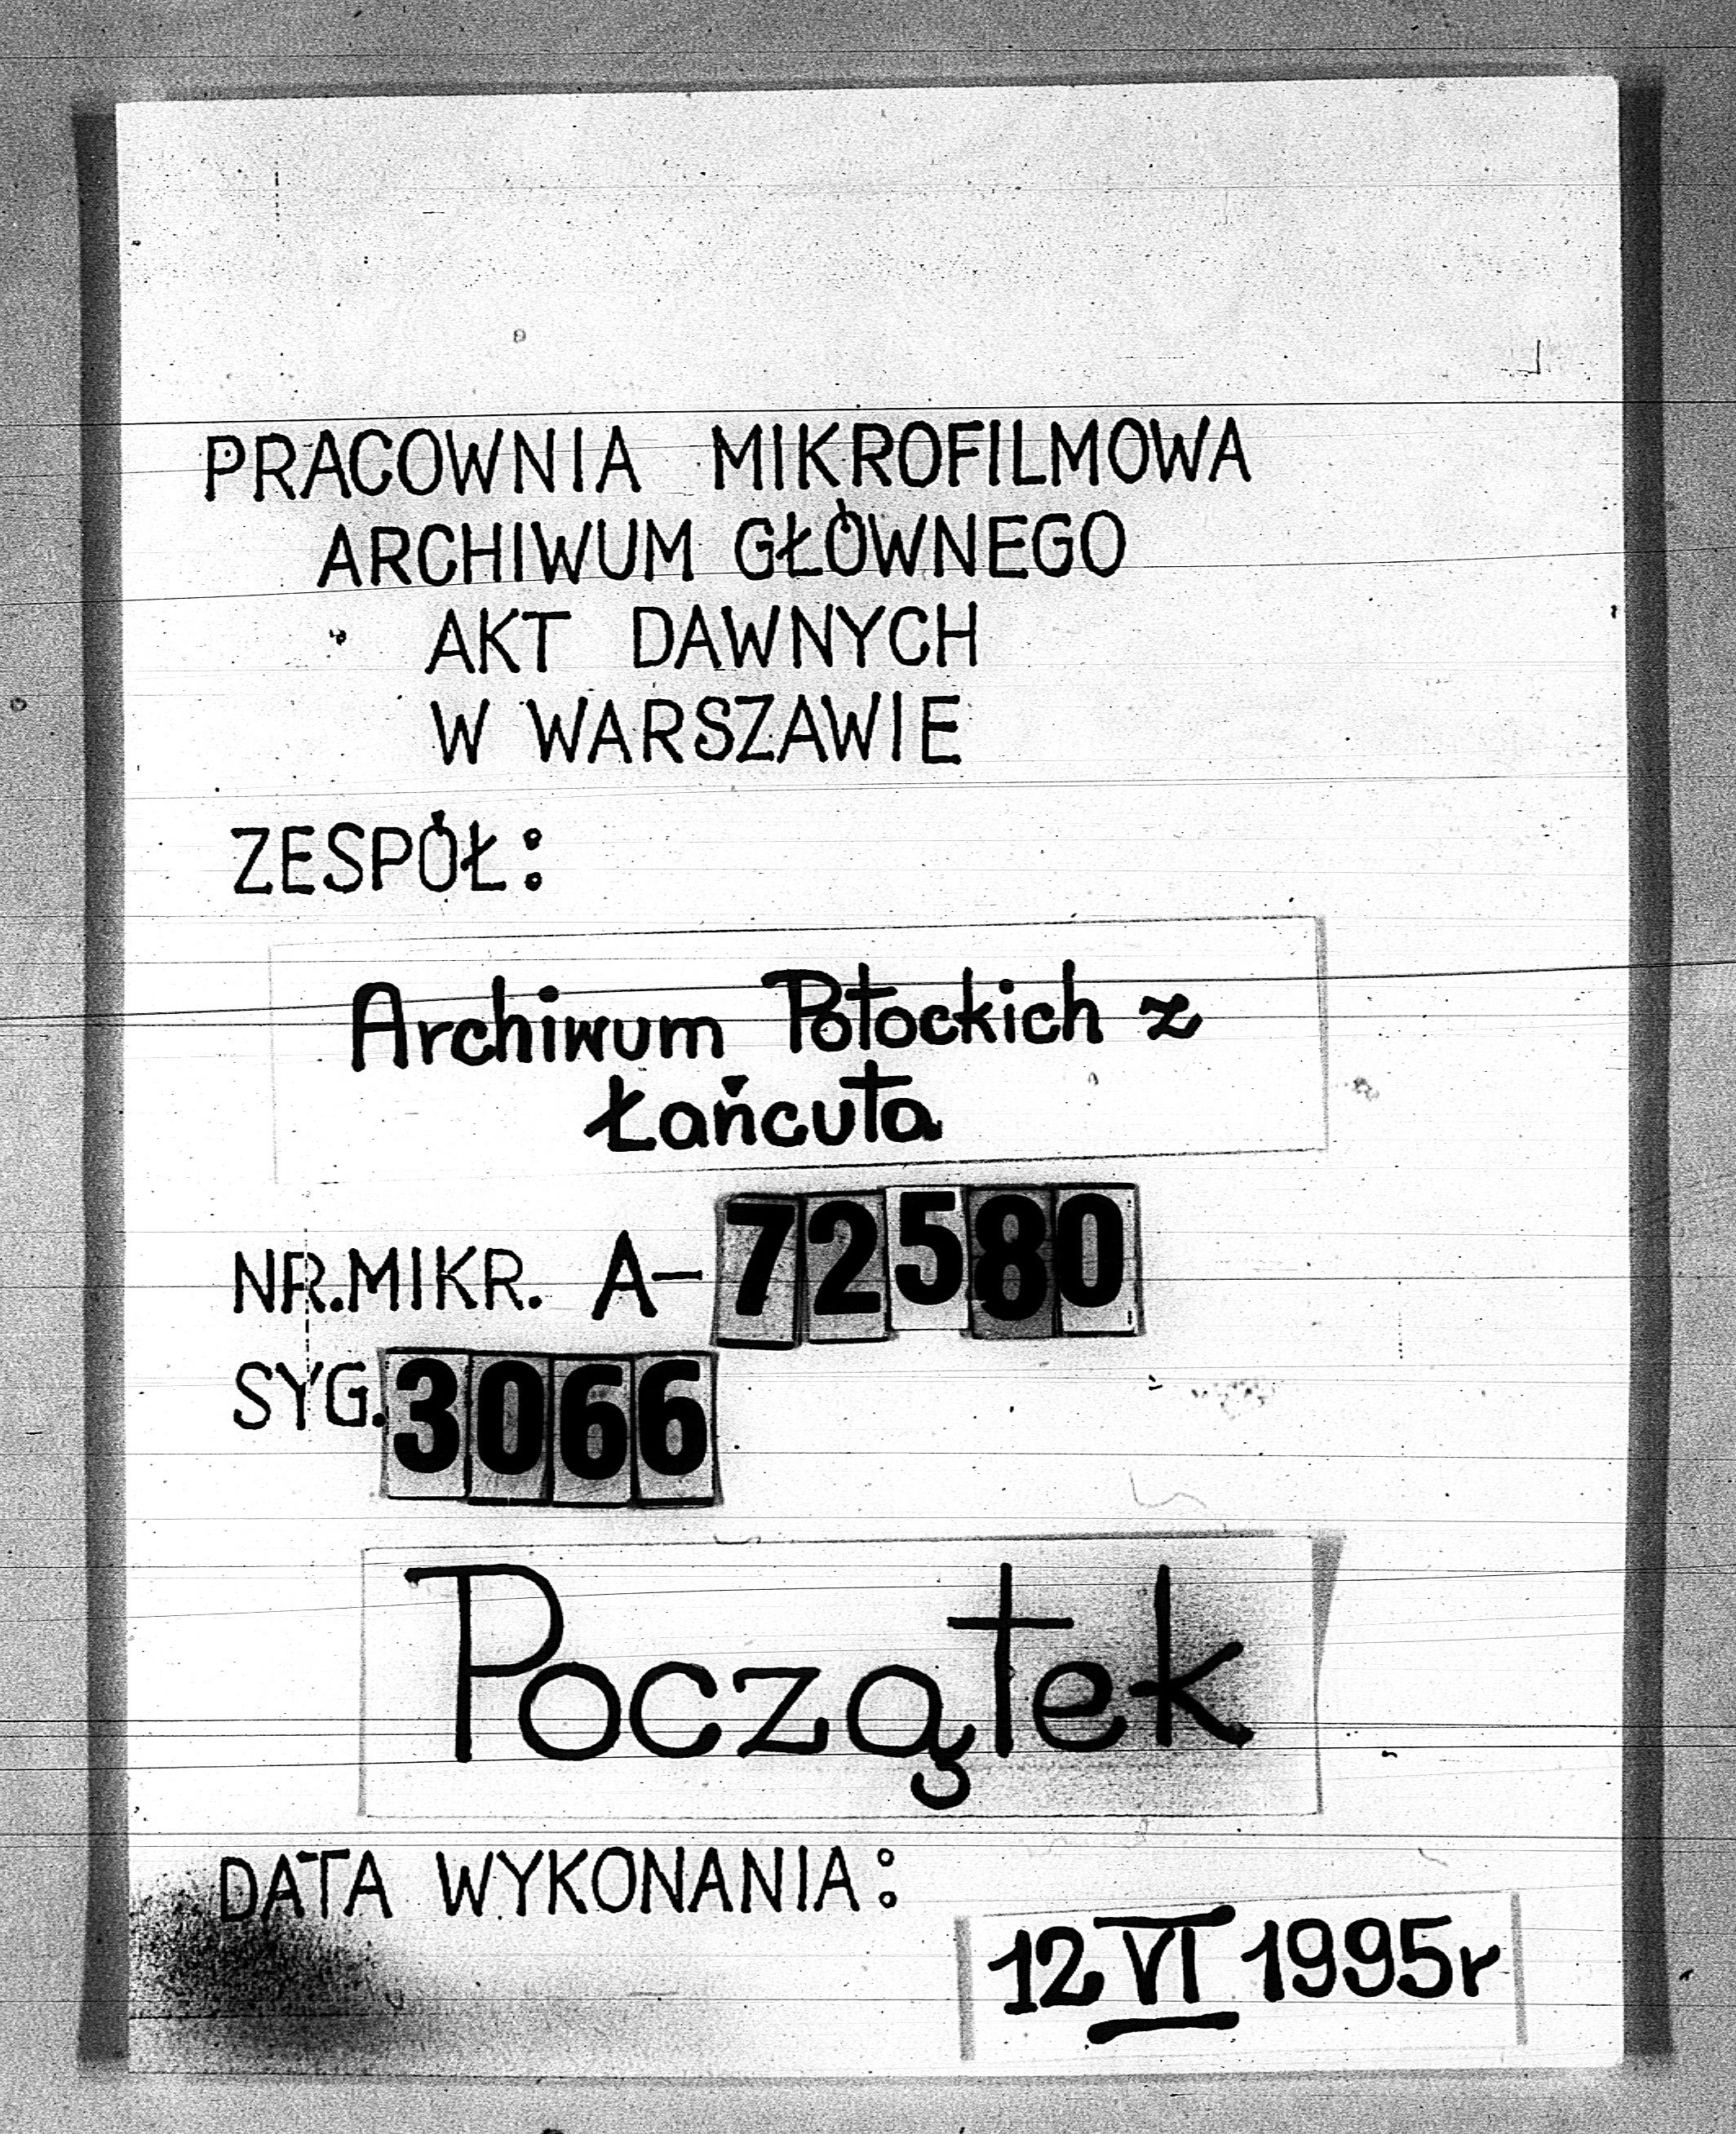 PRACOWNIA MIKROFILMOWA
ARCHIWUM GŁÓWNEGO
AKT DAWNYCH
W WARSZAWIE
ZESPÓŁ:
Archiwum Potockich z
Łańcuta
NR.MIKR. A-72580
SYG.3066
Początek
DATA WYKONANIA:
12 VI 1995r